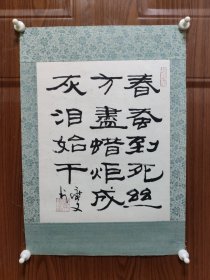 春蚕到死丝
方盡蜡炬成
灰泪始干